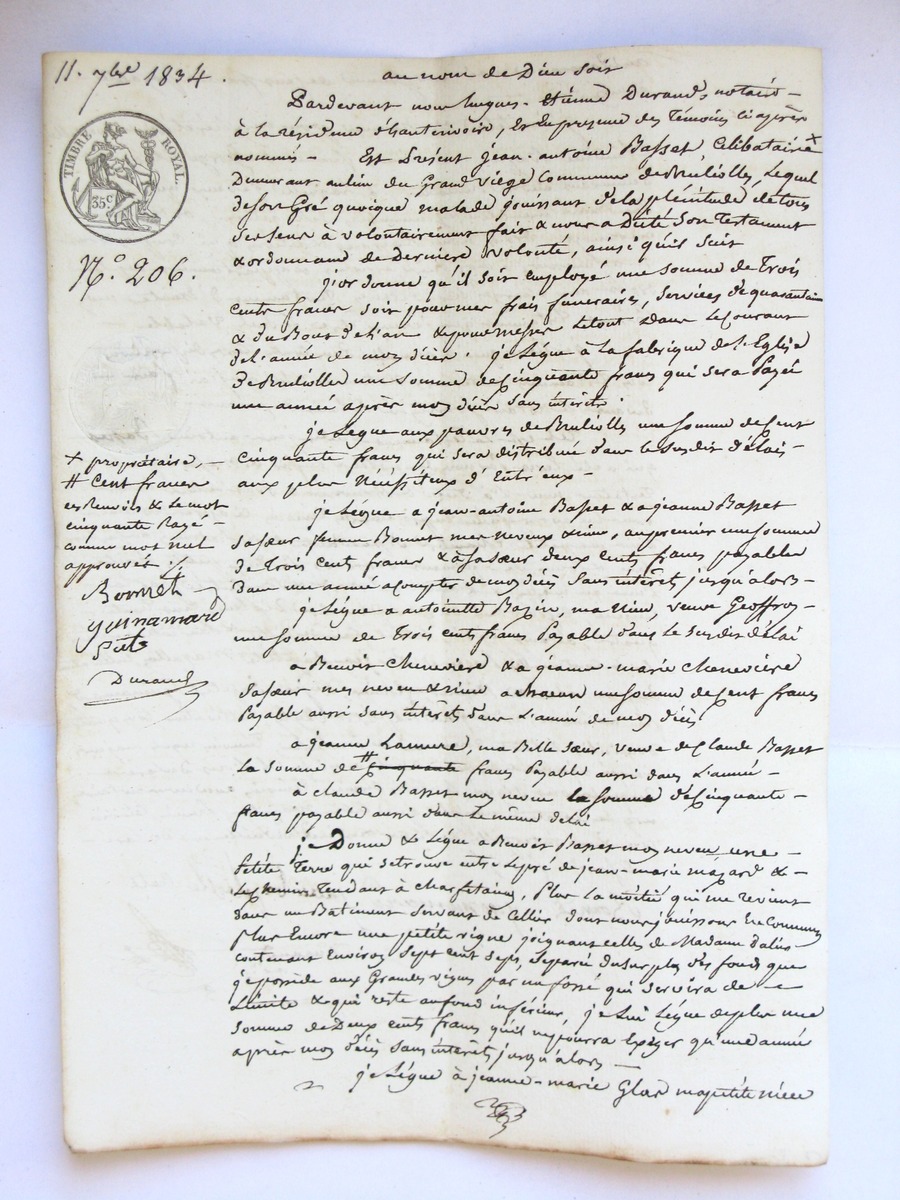 11. 7bre 1834.
TIMBRE ROYAL.
35 c
N.o 206.
au nom de Dieu soit
Pardevant nous hugues-Etienne Durand, notaire –
à la résidence d'hauterivoire, & en presence des Témoins ci après
nommés – Est Présent jean-antoine Basset, Célibataire x
Demeurant au lieu du Grand viége Commune de Brullioles, Lequel
de son Gré quoique malade jouissant de la plénitude de tous
ses sens à volontairement fait & nous a Dicté Son Testament
& ordonnance de Derniere volonté, ainsi qu'il suit
j'ordonne qu'il soit employé une somme de Trois
cents francs soit pour mes frais funeraires, services de quarantaine
& du Bout de l'an & pour messes le tout dans le Courant
de l'année de mon décès. je Légue à la fabrique de l'Eglise
de Brullioles une somme de Cinquante francs qui sera Payée
une année après mon décès sans intérêts.
je Legue aux pauvres de Brullioles une somme de Cent
cinquante francs qui sera distribuée dans le susdit délais –
aux plus Nécéssiteux d'Entr'eux –
je Légue a jean-antoine Basset & a jeanne Basset
sa sœur femme Bonnet mes neveux & niece, au premier une somme
de Trois cents francs & à sa sœur deux cents francs payables
dans une année a compter de mon décès sans intérêts jusqu'alors –
je Légue a antoinette Bazin, ma niece, veuve Geoffroy –
une somme de Trois cents francs Payable dans le susdit délai
a Benoit Cheneviere & a jeanne-marie Cheneviére
sa sœur mes neveu & niece a chacun une somme de Cent francs
Payable aussi sans intérêts dans L'année de mon décès
a jeanne Lamure, ma Belle sœur, veuve de Claude Basset
La somme de # cinquante francs Payable aussi dans L'année –
à claude Basset mon neveu la somme de Cinquante –
francs payable aussi dans le même délai
je Donne & Légue a Benoit Basset mon neveu une –
Petite Terre qui se trouve entre le pré de jean-marie mazard & –
Le chemin Tendant à Plus La moitié qui me revient
dans un Bâtiment Servant de Cellier dont nous jouissons En Commun
Plus Encore une petite vigne joignant celles de Madame
contenant Environ Sept cent seps, séparée du surplus des fonds que
je posséde aux Grandes vignes par un fossé qui servira de –
Limite & qui reste au fond inférieur, je Lui Légue de plus une
somme de Deux cents francs qu'il ne pourra Exiger qu'une année
après mon décès sans intérêts jusqu'alors –
je Légue à jeanne-marie Glas ma petite niece
x propriétaire, –
# Cent francs
ces Renvois & Le mot
cinquante Rayé –
comme mot nul
approuvés
Bonnet
guinamard
Durand